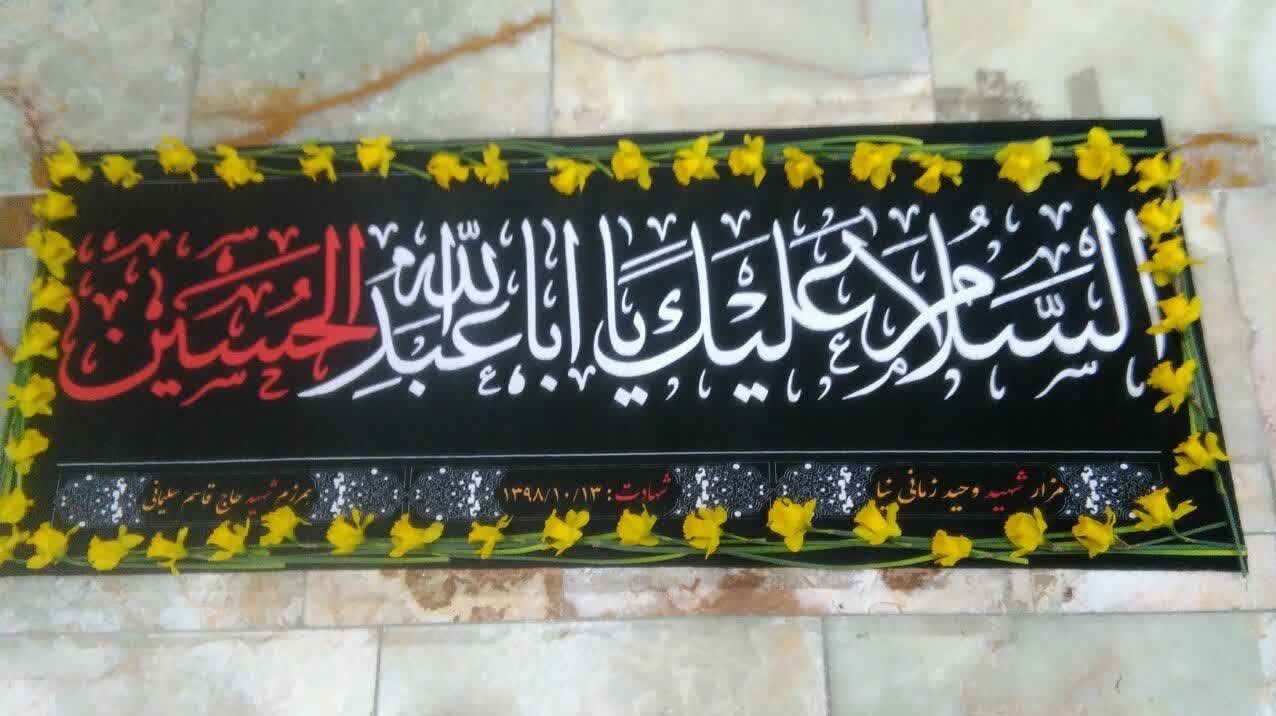 السَّلامُ عَلَيْكَ يا اَبا عَبْدِ اللهِ الحُسَيْن
مزار شهید وحید زمانی نیا
شهادت : ۱۳۹۸/۱۰/۱۳
همرزم شهید حاج قاسم سلیمانی